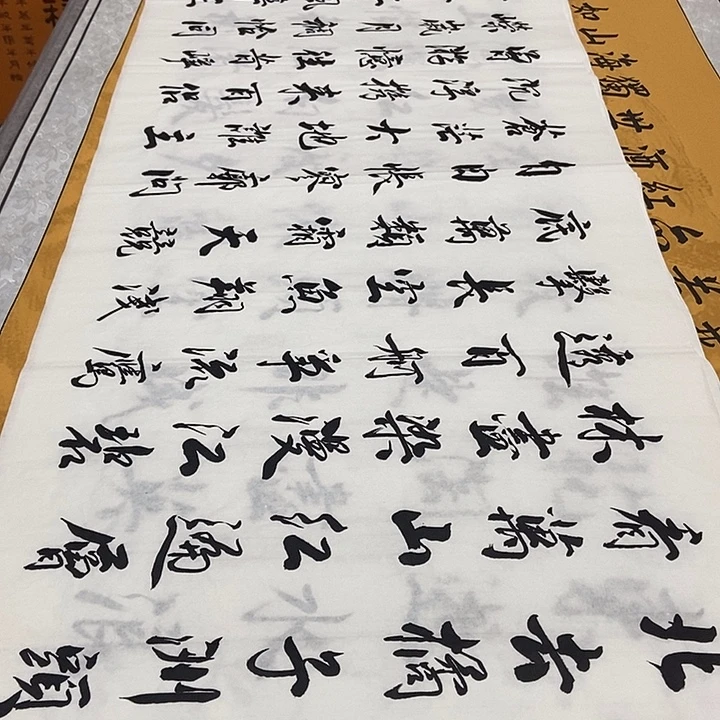 北去橘子洲頭
看萬山紅遍層
林盡染漫江碧
透百舸爭流鷹
擊長空魚翔淺
底萬類霜天競
自由悵寥廓問
蒼茫大地誰主
沉浮攜來百侶
曾遊憶往昔崢
嶸歲月稠恰同